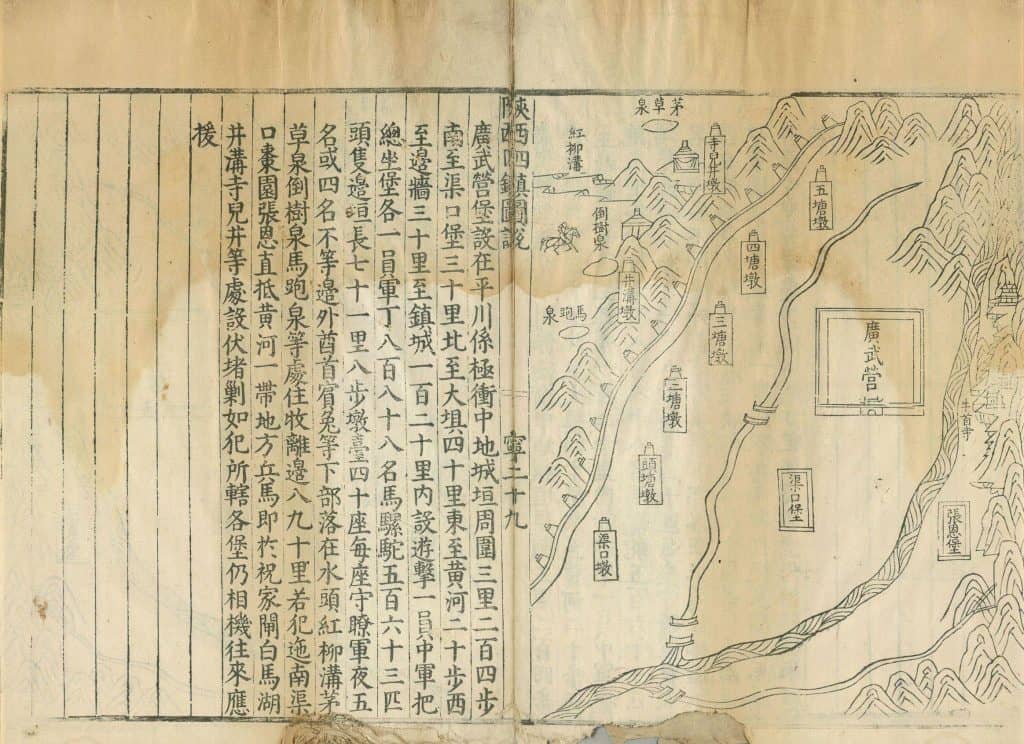 茅草泉
紅柳溝
寺兒井墩
五塘墩
倒樹泉
四塘墩
井溝墩
馬跑泉
三塘墩
廣武營
二塘墩
牛首寺
頭塘墩
渠口堡
張恩堡
渠口墩
陝西四鎮圖說
寧二十九
廣武營堡設在平川係極衝中地城垣周圍三里二百四步
南至渠口堡三十里北至大壩四十里東至黃河二十步西
至邊牆三十里至鎮城一百二十里内設遊擊一員中軍把
總坐堡各一員軍丁八百八十八名馬騾駝五百六十三匹
頭隻邊垣長七十一里八步墩臺四十座每座守瞭軍夜五
名或四名不等邊外酋首賓兔等下部落在水頭紅柳溝茅
草泉倒樹泉馬跑泉等處住牧離邊八九十里若犯迤南渠
口棗園張恩直抵黃河一帶地方兵馬即於祝家閘白馬湖
井溝寺兒井等處設伏堵剿如犯所轄各堡仍相機往來應
援